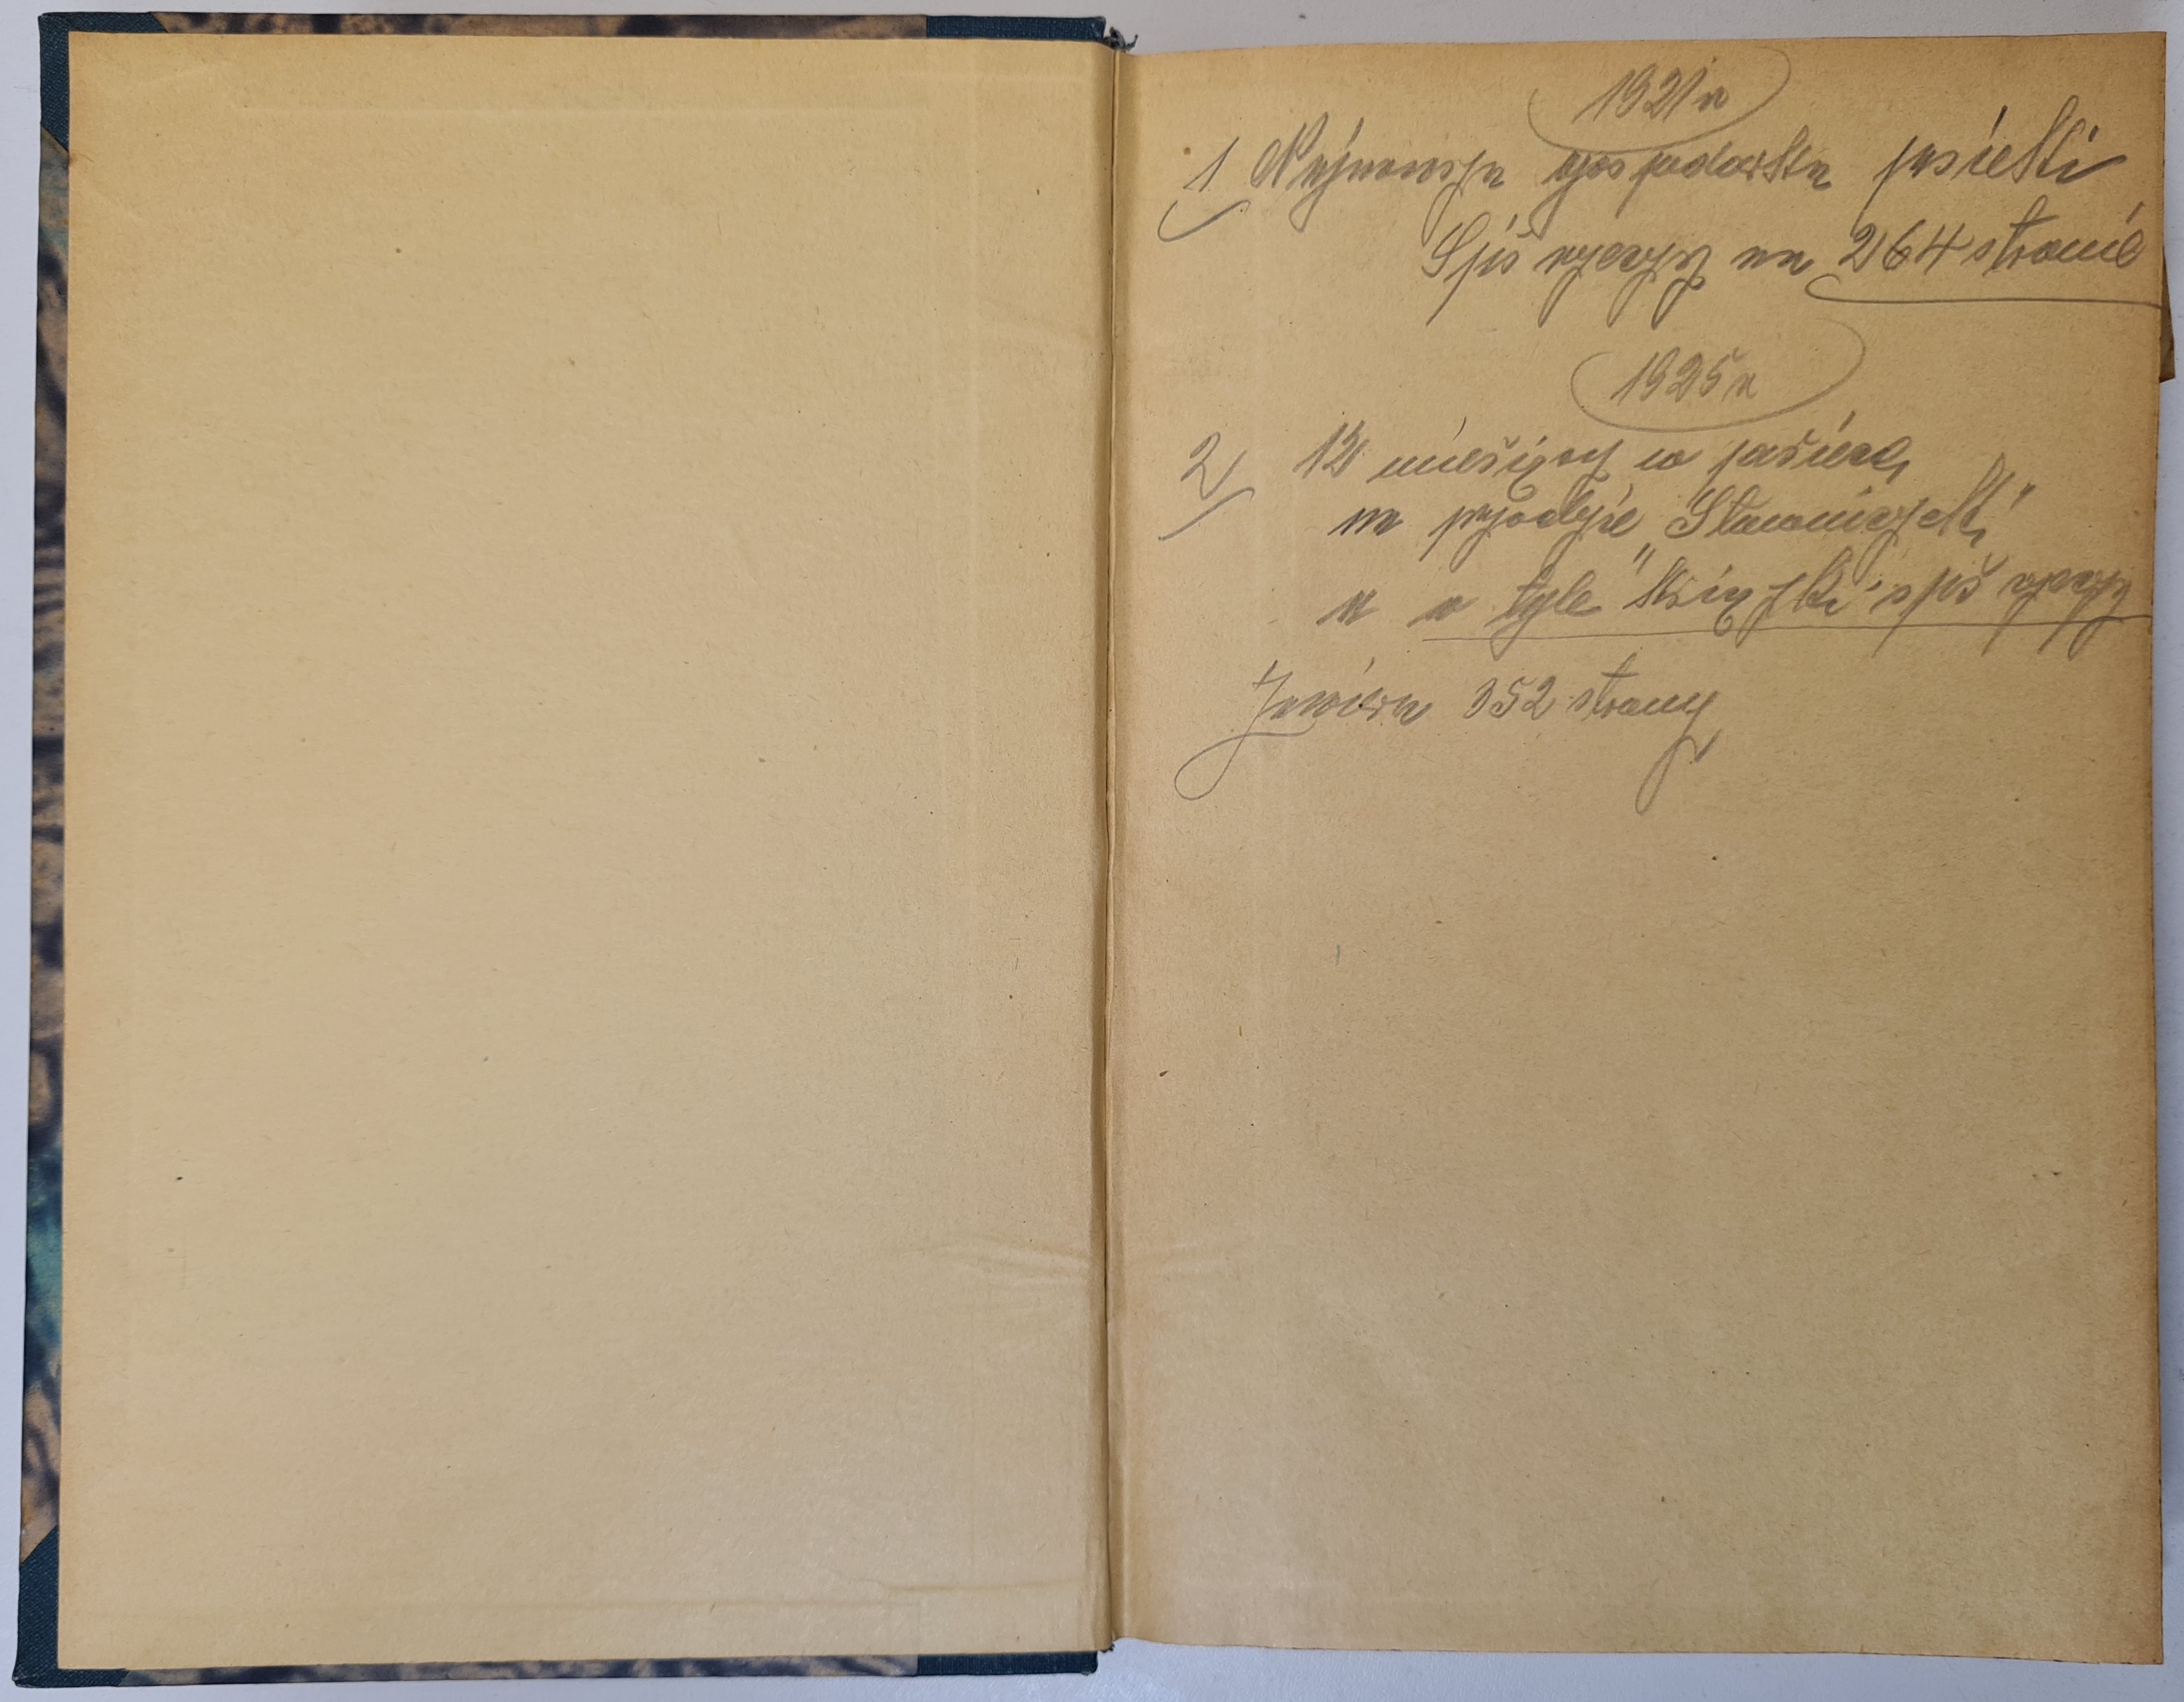 1921 r
1 Najnowsza gospodarka pasieki
Spis rzeczy na 264 stronie
1925 r
2/ 12 miesięcy w pasiece
na przodzie
a w tyle "książki" spis rzeczy
Zawiera 352 strony